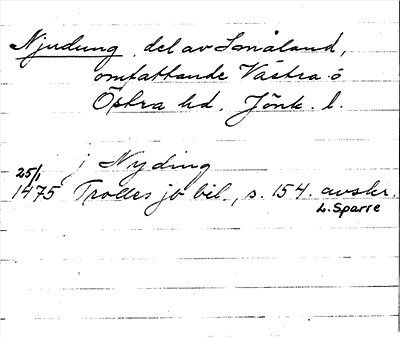 Njudung, del av Småland,
omfattande Västra o
Östra hd, Jönk. l.
j Nyding
25/1
1475 Trolles jb bil., s. 154. avskr.
L. Sparre